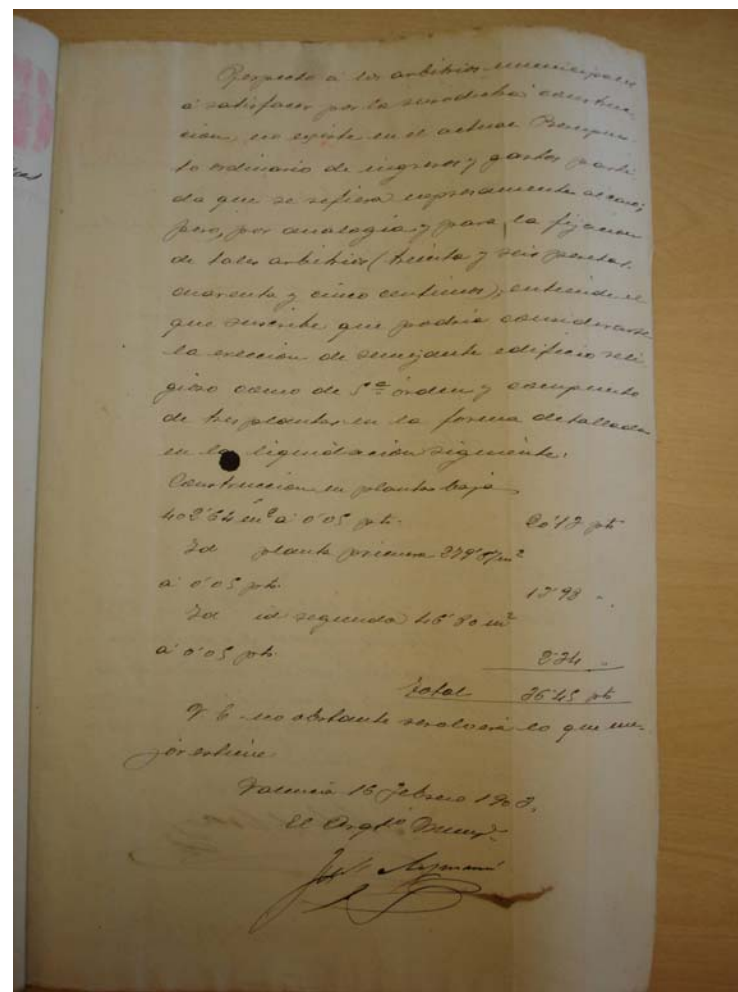 Respecto á los arbitrios municipales
á satisfacer por la susodicha construc-
ción, no existe en el actual Presupues-
to ordinario de ingresos y gastos parti-
da que se refiera expresamente al caso;
pero, por analogía y para la fijación
de tales arbitrios (treinta y seis pesetas
cuarenta y cinco centimos), entiende el
que suscribe que podría considerarse
la erección de semejante edificio reli-
gioso como de 5º orden y compuesto
de tres plantas en la forma detallada
en la liquidación siguiente:
Construcción en planta baja
402'64 m² á 0'05 pts. 20'13 pts
Id planta primera 279'67 m²
á 0'05 pts. 13'98 "
Id id segunda 46'80 m²
á 0'05 pts. 2'34 "
Total 36'45 pts
V. E. no obstante resolverá lo que me-
jor estime.
Valencia 16 Febrero 1903.
El Arqtº
José